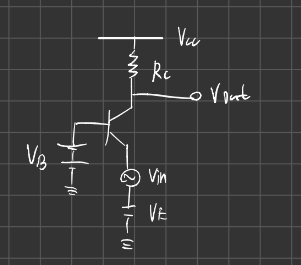 Vcc
Rc
Vout
VB
Vin
VE